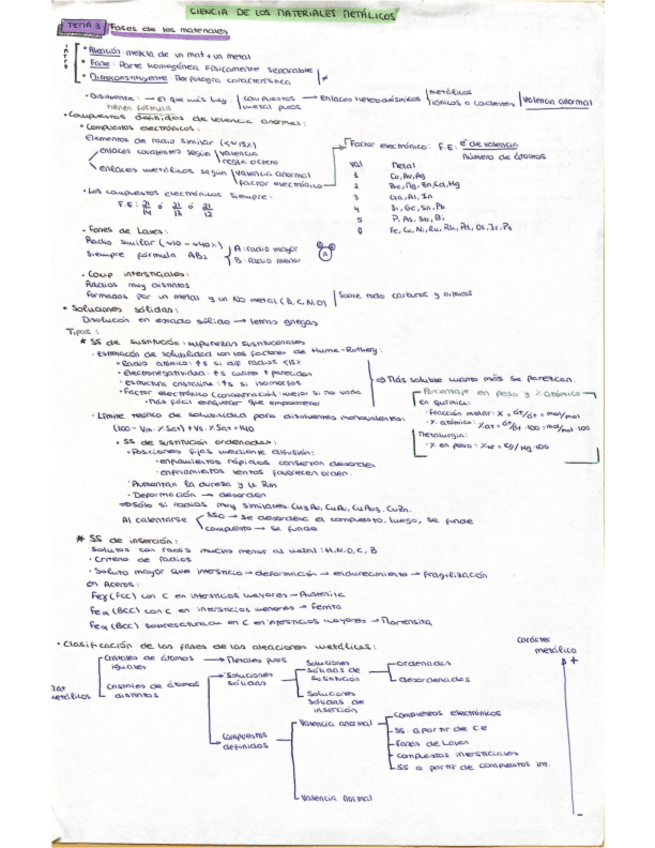 CIENCIA DE LOS MATERIALES METÁLICOS
TEMA 3 Fases de los materiales
INTRO
• Aleación: mezcla de un mat + un metal
• Fase: Parte homogénea físicamente separable
• Microconstituyente: Morfología característica ≠
• Disolvente: → El que más hay. compuestos metal puros → Enlaces heterodésmicos metálicos iónicos o covalentes Valencia anormal
tienen fórmula
• Compuestos definidos de valencia anormal:
• Compuestos electrónicos:
Elementos de radio similar (<15%)
enlaces covalentes según valencia regla octero
enlaces metálicos según valencia anormal factor electrónico
Factor electrónico: F.E: e⁻ de valencia / número de átomos
Val Metal
1 Cu, Au, Ag
2 Be, Mg, Zn, Cd, Hg
3 Ga, Al, In
4 Si, Ge, Sn, Pb
5 P, As, Sb, Bi
0 Fe, Co, Ni, Ru, Rh, Pd, Os, Ir, Pt
• Los compuestos electrónicos siempre:
F.E: 21/14 ó 21/13 ó 21/12
• Fases de Laves:
Radio similar (~10 - ~40%)
Siempre fórmula AB₂ A: radio mayor
B: radio menor
A
• Comp intersticiales:
Radios muy distintos
Formados por un metal y un No metal (B, C, N, O) Sobre todo carburos y nitruros
• Soluciones sólidas:
Disolución en estado sólido → letras griegas
Tipos:
* SS de sustitución: impurezas sustitucionales
• Estimación de solubilidad con los factores de Hume-Rothery:
• Radio atómico: ↑s si dif radios <15%
• Electronegatividad: ↑s cuanto + parecidas
• Estructura cristalina: ↑s si isomorfos
• Factor electrónico (concentración): mejor si no varía
• Más fácil enriquecer que empobrecer
⇒ Más soluble cuanto más se parezcan.
Porcentaje en peso y % atómico
en química:
• fracción molar: X = at/at = mol/mol
• % atómico: Xat = at/at · 100 = mol/mol · 100
Metalurgia:
• % en peso: Xwt = kg/kg · 100
• Límite teórico de solubilidad para disolventes monovalentes:
(100 - Vm · XSat) + Vs · XSat = 140
• SS de sustitución ordenadas:
• Posiciones fijas mediante difusión:
• enfriamientos rápidos conservan desorden
• enfriamientos lentos favorecen orden.
• Aumentan la dureza y la Rm
• Deformación → desorden
⇒ Sólo si radios muy similares: Cu₃Au, CuAu, CuAu₃, CuZn.
Al calentarse SSO → se desordena el compuesto, luego, se funde
compuesto → se funde
* SS de inserción:
Solutos con radio mucho menor al metal: H, N, O, C, B
• Criterio de radios
• Soluto mayor que intersticio → deformación → endurecimiento → fragilización
en Aceros:
Feγ (FCC) con C en intersticios mayores → Austenita
Feα (BCC) con C en intersticios menores → ferrita
Feα (BCC) sobresaturado en C en intersticios mayores → Martensita
• Clasificación de las fases de las aleaciones metálicas:
carácter metálico
+
Mat metálicos
Cristales de átomos iguales → Metales puros
Cristales de átomos distintos
Soluciones sólidas
Soluciones sólidas de sustitución
ordenadas
desordenadas
Soluciones sólidas de inserción
Compuestos definidos
Valencia anormal
Compuestos electrónicos
SS. a partir de c e
Fases de Laves
Compuestos intersticiales
SS a partir de compuestos int.
Valencia normal
-